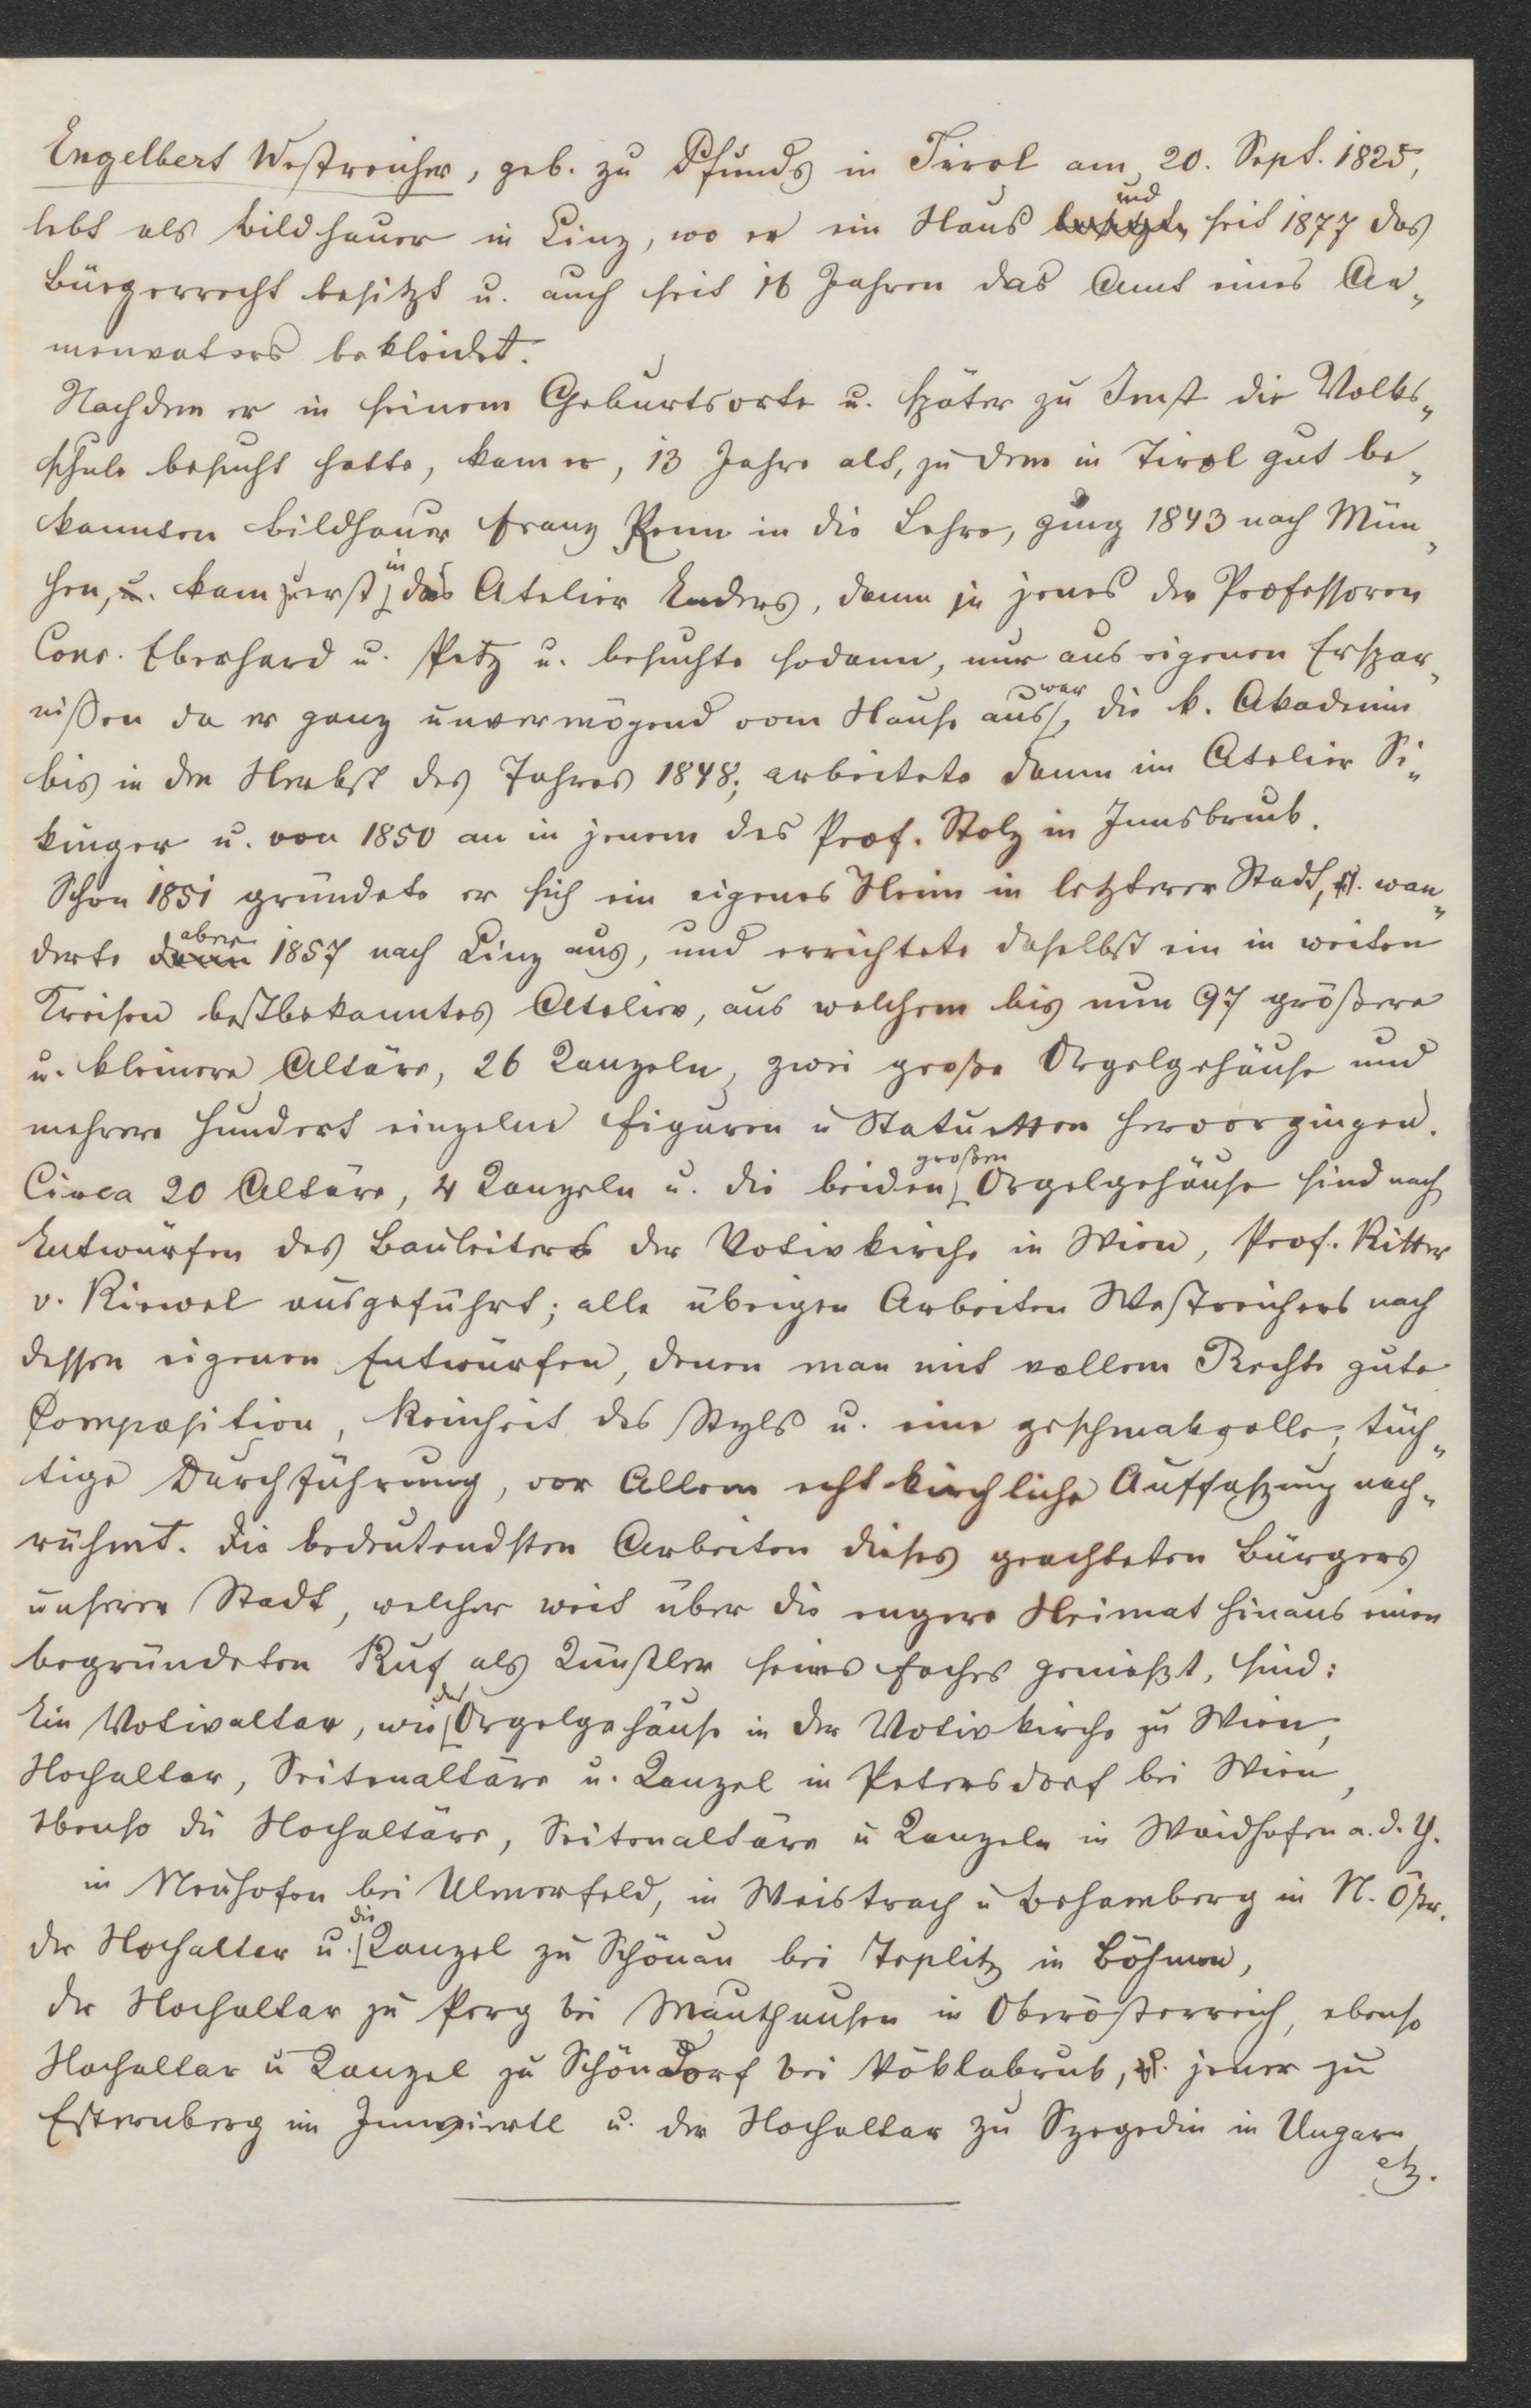 Engelbert Westreicher, geb. zu Pfunds in Tirol am 20. Sept. 1825,
lebt als Bildhauer in Linz, wo er ein Haus und seit 1877 das
Bürgerrecht besitzt u. auch seit 16 Jahren das Amt eines Ar„
menvaters bekleidet.
Nachdem er in seinem Geburtsorte u. später zu Imst die Volks„
schule besucht hatte, kam er, 13 Jahre alt, zu dem in Tirol gut be„
kannten Bildhauer Franz Renn in die Lehre, ging 1843 nach Mün„
chen, u. kam zuerst in das Atelier Enders, dann in jenes der Professoren
Conr. Eberhard u. Petz u. besuchte sodann, nur aus eigenen Erspar„
nißen da er ganz unvermögend vom Hause aus war, die k. Akademie
bis in den Herbst des Jahres 1848; arbeitete dann im Atelier Si„
kinger u. von 1850 an in jenem des Prof. Stolz in Innsbruck.
Schon 1851 gründete er sich ein eigenes Heim in letzterer Stadt, wan„
derte dann aber 1857 nach Linz aus, und errichtete daselbst ein in weiten
Kreisen bestbekanntes Atelier, aus welchem bis nun 97 größere
u. kleinere Altäre, 26 Kanzeln, zwei große Orgelgehäuse und
mehrere hundert einzelne Figuren u Statuetten hervorgingen.
Circa 20 Altäre, 4 Kanzeln u. die beiden großen Orgelgehäuse sind nach
Entwürfen des Bauleiters der Votivkirche in Wien, Prof. Ritter
v. Riewel ausgeführt; alle übrigen Arbeiten Westreichers nach
dessen eigenen Entwürfen, denen man mit vollem Rechte gute
Composition, Reinheit des Styls u. eine geschmakvolle, tüch„
tige Durchführung, vor Allem echt kirchliche Auffaßung nach„
rühmt. Die bedeutendsten Arbeiten dieses geachteten Bürgers
unserer Stadt, welcher weit über die engere Heimat hinaus einen
begründeten Ruf als Künstler seines Faches genießt, sind:
Ein Votivaltar, wie das Orgelgehäuse in der Votivkirche zu Wien,
Hochaltar, Seitenaltäre u. Kanzel in Petersdorf bei Wien,
ebenso die Hochaltäre, Seitenaltäre u Kanzeln in Waidhofen a. d. Y.
in Neuhofen bei Ulmerfeld, in Weistrach u Behamberg in N. Östr.
der Hochaltar u. die Kanzel zu Schönau bei Teplitz in Böhmen,
der Hochaltar zu Perg bei Mauthausen in Oberösterreich, ebenso
Hochaltar u Kanzel zu Schöndorf bei Vöklabruk, jener zu
Esternberg im Innviertl u. der Hochaltar zu Szegedin in Ungarn
etz.